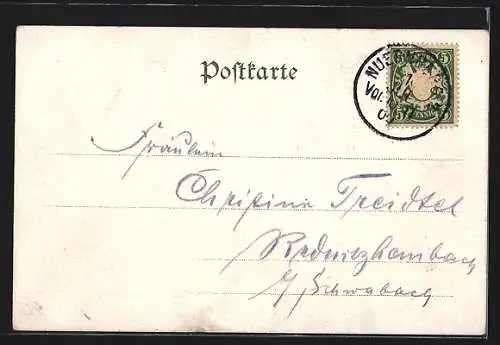 Postkarte
Fräulein
Christina Treidtel
Rednitzhembach
b/ Schwabach
5